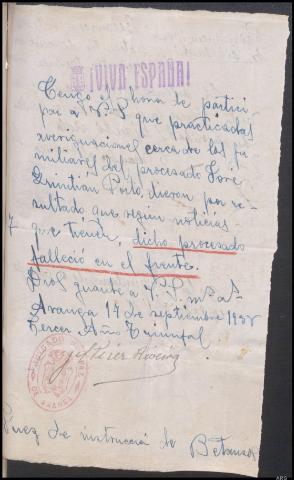 ¡VIVA ESPAÑA!
Tengo el honor de partici
par a V.S. que practicadas
averiguaciones cerca de los fa
miliares del procesado José
Quintian Poilo, dieron por re-
sultado que segun noticias
que tienen, dicho procesado
falleció en el frente.
Dios guarde a V.S. m. a.
Aranga 14 de septiembre 1938
Tercer Año Triunfal
JUZGADO
ARANGA
Juez de instrucción de Betanzos
ARG